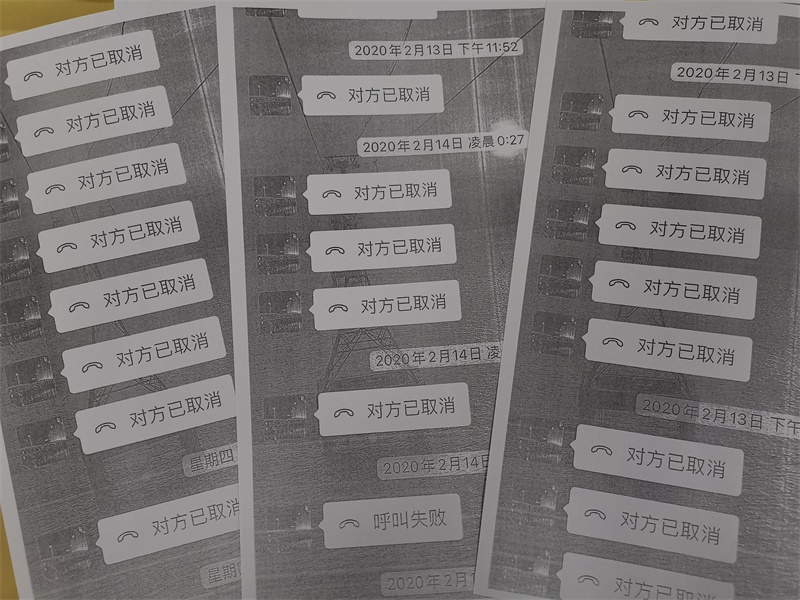 对方已取消
对方已取消
对方已取消
对方已取消
对方已取消
对方已取消
对方已取消
星期四
对方已取消
星期四
2020年2月13日 下午11:52
对方已取消
2020年2月14日 凌晨0:27
对方已取消
对方已取消
对方已取消
2020年2月14日 凌
对方已取消
2020年2月14日
呼叫失败
2020年2月1
对方已取消
2020年2月13日
对方已取消
对方已取消
对方已取消
对方已取消
对方已取消
2020年2月13日 下午
对方已取消
对方已取消
对方已取消